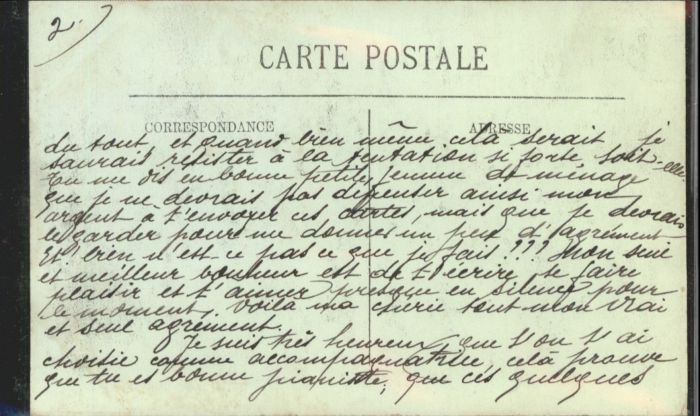 2.
CARTE POSTALE
CORRESPONDANCE
ADRESSE
du tout, et quand bien même cela serait je
saurais résister à la tentation si forte soit-elle.
Tu me dis en bonne petite femme de ménage
que je ne devrais pas dépenser ainsi mon
argent à t'envoyer ces cartes, mais que je devrais
le garder pour me donner un peu d'agrément
Et bien n'est ce pas ce que je fais!!! Mon seul
et meilleur bonheur est de t'écrire, te faire
plaisir et t'aimer presque en silence pour
le moment. Voilà ma chérie tout mon vrai
et seul agrément.
Je suis très heureux, que l'on t'ai
choisie comme accompagnatrice, celà prouve
que tu es bonne pianiste; que ces quelques